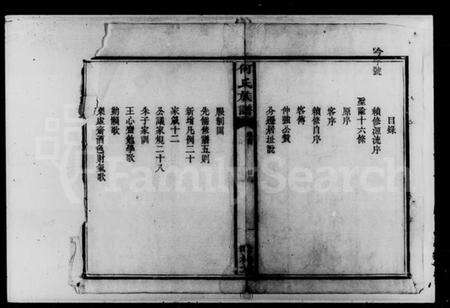 吟字號
目錄
續修源流序
聖諭十六條
原序
續修自序
客序
客傳
仲弘公贊
分遷居址說
何氏族譜
服制圖
先儒修譜五則
新增凡例二十
家箴十二
公議家規二十八
朱子家訓
王心齋勉學歌
勸懶歌
東虛齋酒色財氣歌
FamilySearch